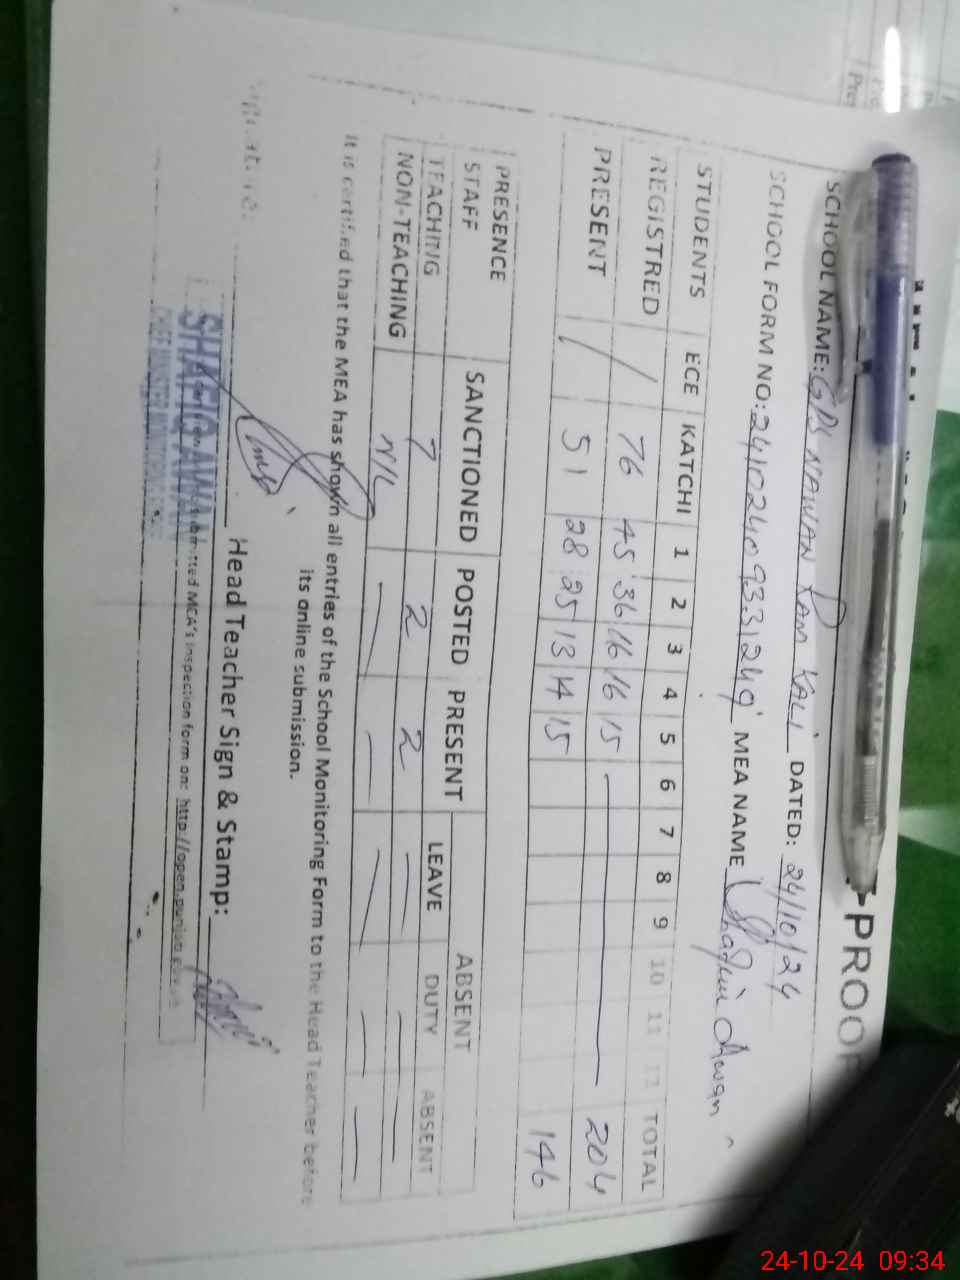 -PROOF
SCHOOL NAME: GPS NAWAN RAM KALI DATED: 24/10/24
SCHOOL FORM NO: 2410240933124g MEA NAME Shafiq Awan
STUDENTS ECE KATCHI 1 2 3 4 5 6 7 8 9 10 11 12 TOTAL
REGISTRED / 76 45 36 16 16 15 — 204
PRESENT / 51 28 25 13 14 15 146
PRESENCE SANCTIONED POSTED PRESENT ABSENT
STAFF LEAVE DUTY ABSENT
TEACHING 7 2 2 — — —
NON-TEACHING NIL — — — — —
It is certified that the MEA has shown all entries of the School Monitoring Form to the Head Teacher before
its online submission.
Signature: Head Teacher Sign & Stamp:
SHAFIQ AWAN
submitted MEA's inspection form on: http://open.punjab
24-10-24 09:34